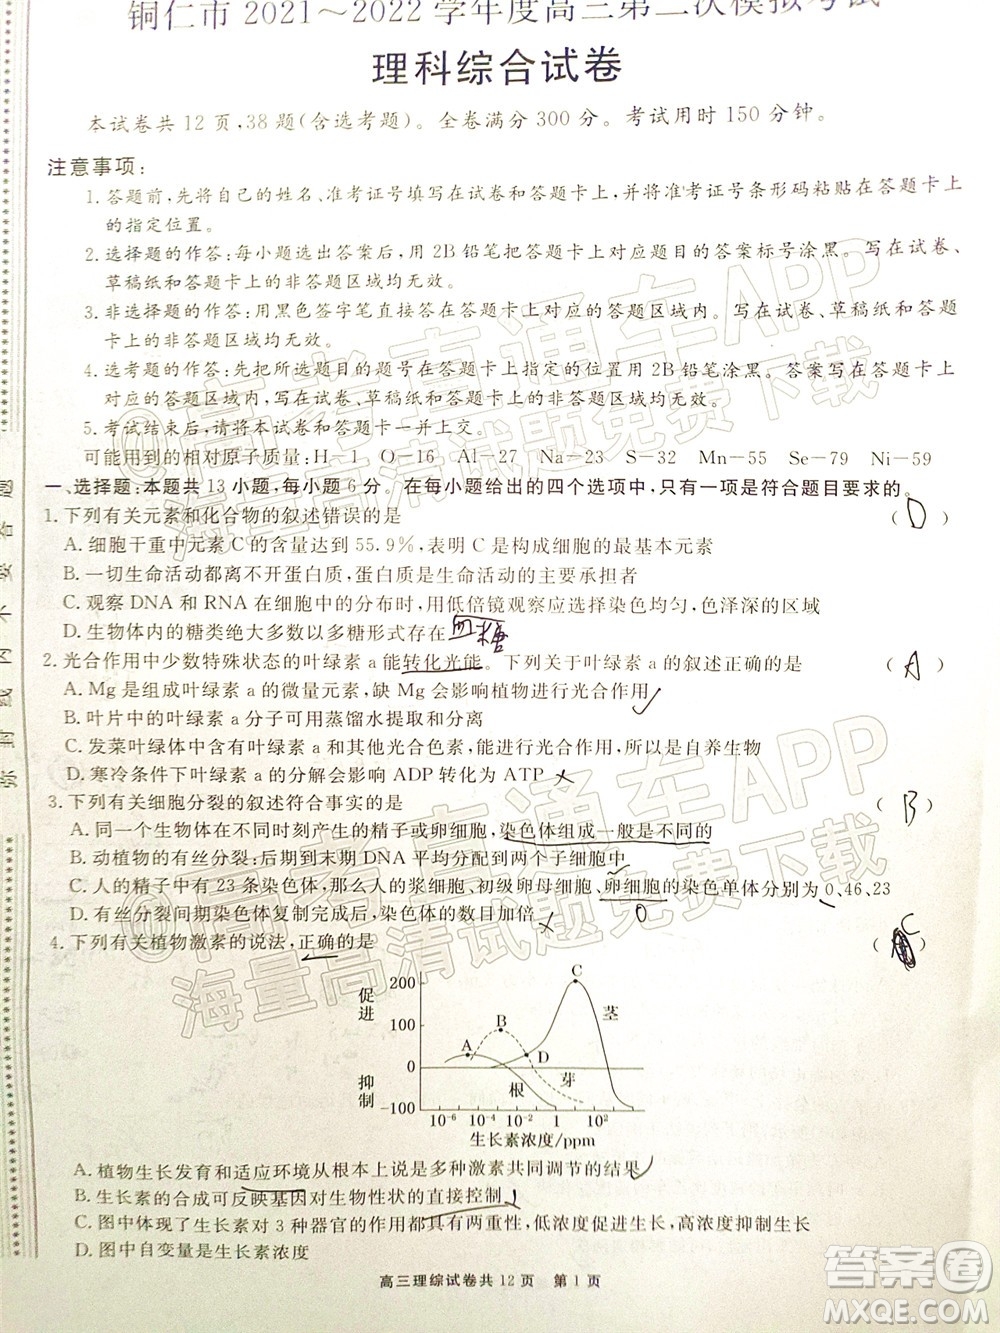 铜仁市 2021～2022 学年度高三第二次模拟考试
理科综合试卷
本试卷共 12 页,38 题(含选考题)。全卷满分 300 分。考试用时 150 分钟。
注意事项:
1. 答题前,先将自己的姓名、准考证号填写在试卷和答题卡上,并将准考证号条形码粘贴在答题卡上
的指定位置。
2. 选择题的作答:每小题选出答案后,用 2B 铅笔把答题卡上对应题目的答案标号涂黑。写在试卷、
草稿纸和答题卡上的非答题区域均无效。
3. 非选择题的作答:用黑色签字笔直接答在答题卡上对应的答题区域内。写在试卷、草稿纸和答题
卡上的非答题区域均无效。
4. 选考题的作答:先把所选题目的题号在答题卡上指定的位置用 2B 铅笔涂黑。答案写在答题卡上
对应的答题区域内,写在试卷、草稿纸和答题卡上的非答题区域均无效。
5. 考试结束后,请将本试卷和答题卡一并上交。
可能用到的相对原子质量:H—1 O—16 Al—27 Na—23 S—32 Mn—55 Se—79 Ni—59
一、选择题:本题共 13 小题,每小题 6 分。在每小题给出的四个选项中,只有一项是符合题目要求的。
1. 下列有关元素和化合物的叙述错误的是 ( D )
A. 细胞干重中元素 C 的含量达到 55.9%,表明 C 是构成细胞的最基本元素
B. 一切生命活动都离不开蛋白质,蛋白质是生命活动的主要承担者
C. 观察 DNA 和 RNA 在细胞中的分布时,用低倍镜观察应选择染色均匀,色泽深的区域
D. 生物体内的糖类绝大多数以多糖形式存在 血糖
2. 光合作用中少数特殊状态的叶绿素 a 能转化光能。下列关于叶绿素 a 的叙述正确的是 ( A )
A. Mg 是组成叶绿素 a 的微量元素,缺 Mg 会影响植物进行光合作用
B. 叶片中的叶绿素 a 分子可用蒸馏水提取和分离
C. 发菜叶绿体中的叶绿素 a 和其他光合色素,能进行光合作用,所以是自养生物
D. 寒冷条件下叶绿素 a 的分解会影响 ADP 转化为 ATP
3. 下列有关细胞分裂的叙述符合事实的是 ( B )
A. 同一个生物体在不同时刻产生的精子或卵细胞,染色体组成一般是不同的
B. 动植物的有丝分裂:后期到末期 DNA 平均分配到两个子细胞中
C. 人的精子中有 23 条染色体,那么神经细胞、初级卵母细胞、卵细胞的染色单体分别为 0、46、23
0
D. 有丝分裂间期染色体复制完成后,染色体的数目加倍
4. 下列有关植物激素的说法,正确的是 ( C )
促进
抑制
200
100
0
-100
A
B
C
D
根
芽
茎
10⁻⁶ 10⁻⁴ 10⁻² 1 10²
生长素浓度/ppm
A. 植物生长发育和适应环境从根本上说是多种激素共同调节的结果
B. 生长素的合成可反映基因对生物性状的直接控制
C. 图中体现了生长素对 3 种器官的作用都具有两重性,低浓度促进生长,高浓度抑制生长
D. 图中自变量是生长素浓度
高三理综试卷共 12 页 第 1 页
弥封线内不要答题
@高考直通车APP
海量高清试题免费下载
@高考直通车APP
海量高清试题免费下载
答案圈
MXQE.COM